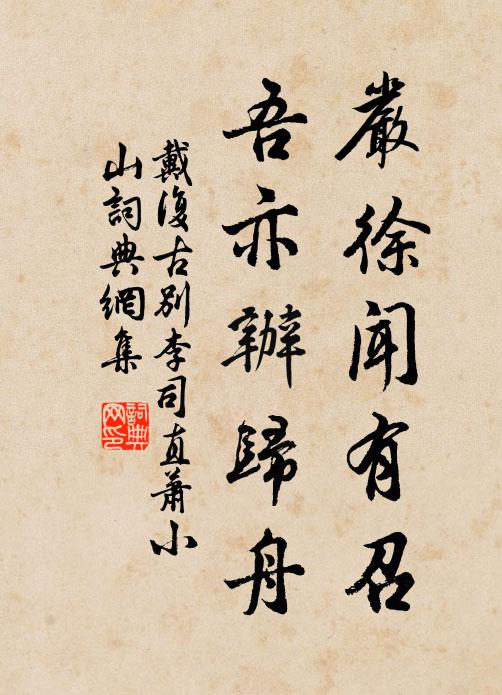 嚴徐聞有召
吾亦辦歸舟
戴復古別李司直蕭小
山詞典網集
詞典
网印